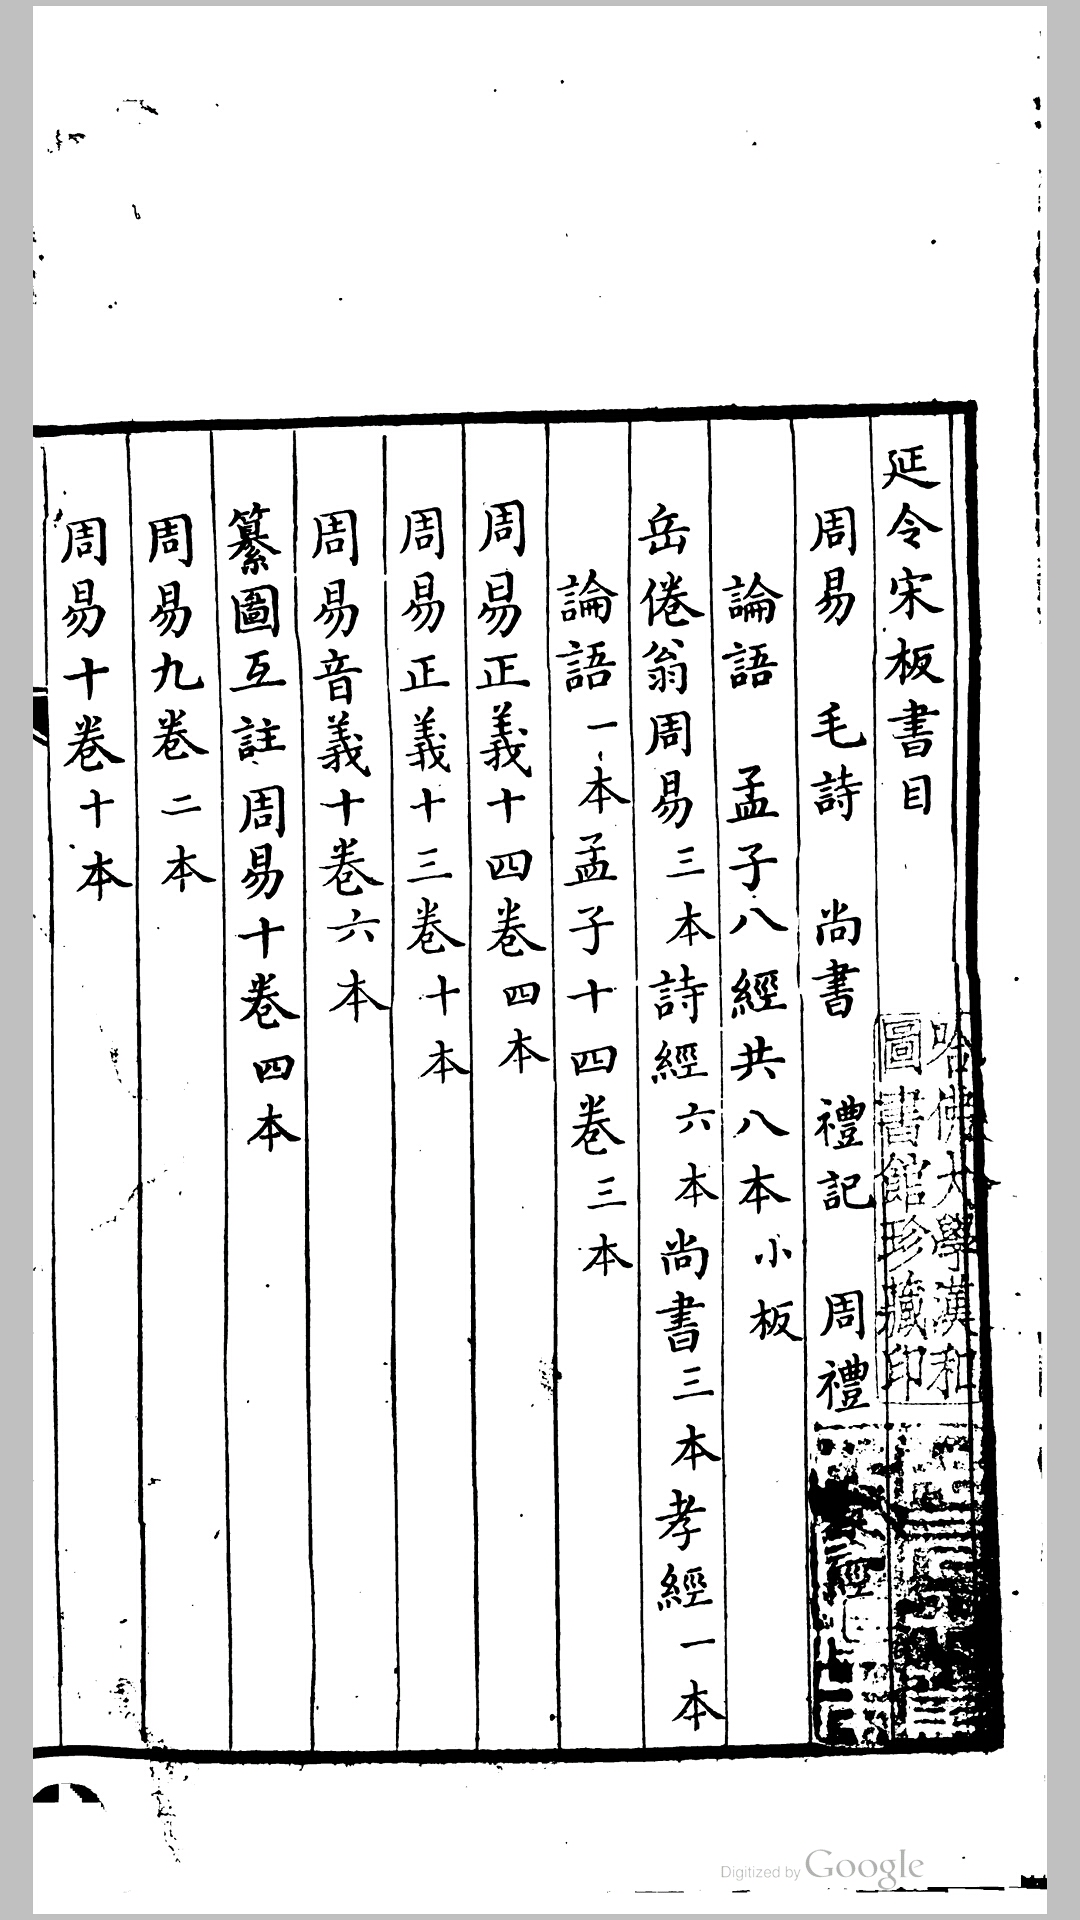 延令宋板書目
周易　毛詩　尚書　禮記　周禮　孝經
論語　孟子八經共八本小板
岳倦翁周易三本詩經六本尚書三本孝經一本
論語一本孟子十四卷三本
周易正義十四卷四本
周易正義十三卷十本
周易音義十卷六本
纂圖互註周易十卷四本
周易九卷二本
周易十卷十本
哈佛大學漢和
圖書館珍藏印
Digitized by Google